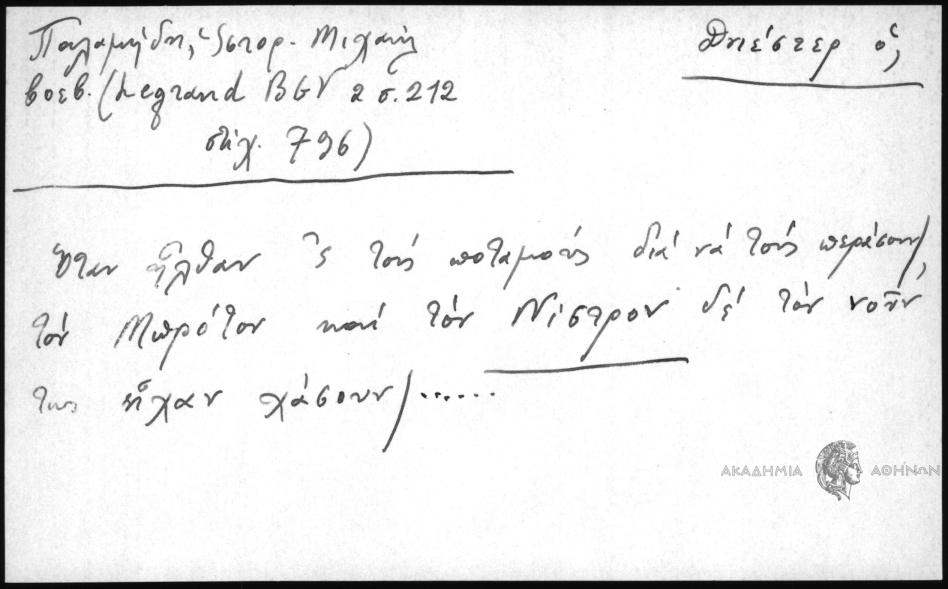 Παλαμήδη, Ἱστορ. Μιχαήλ
Δνιέστερ ὁ,
βοεβ. (Legrand BGV 2 σ. 212
στίχ. 796)
Ὅταν ἦλθαν 'ς τοὺς ποταμοὺς διὰ νὰ τοὺς περάσουν/,
τὸν Μπρότον καὶ τὸν Νίστρον δὲ τὸν νοῦν
τως εἶχαν χάσουν/......
ΑΚΑΔΗΜΙΑ ΑΘΗΝΩΝ